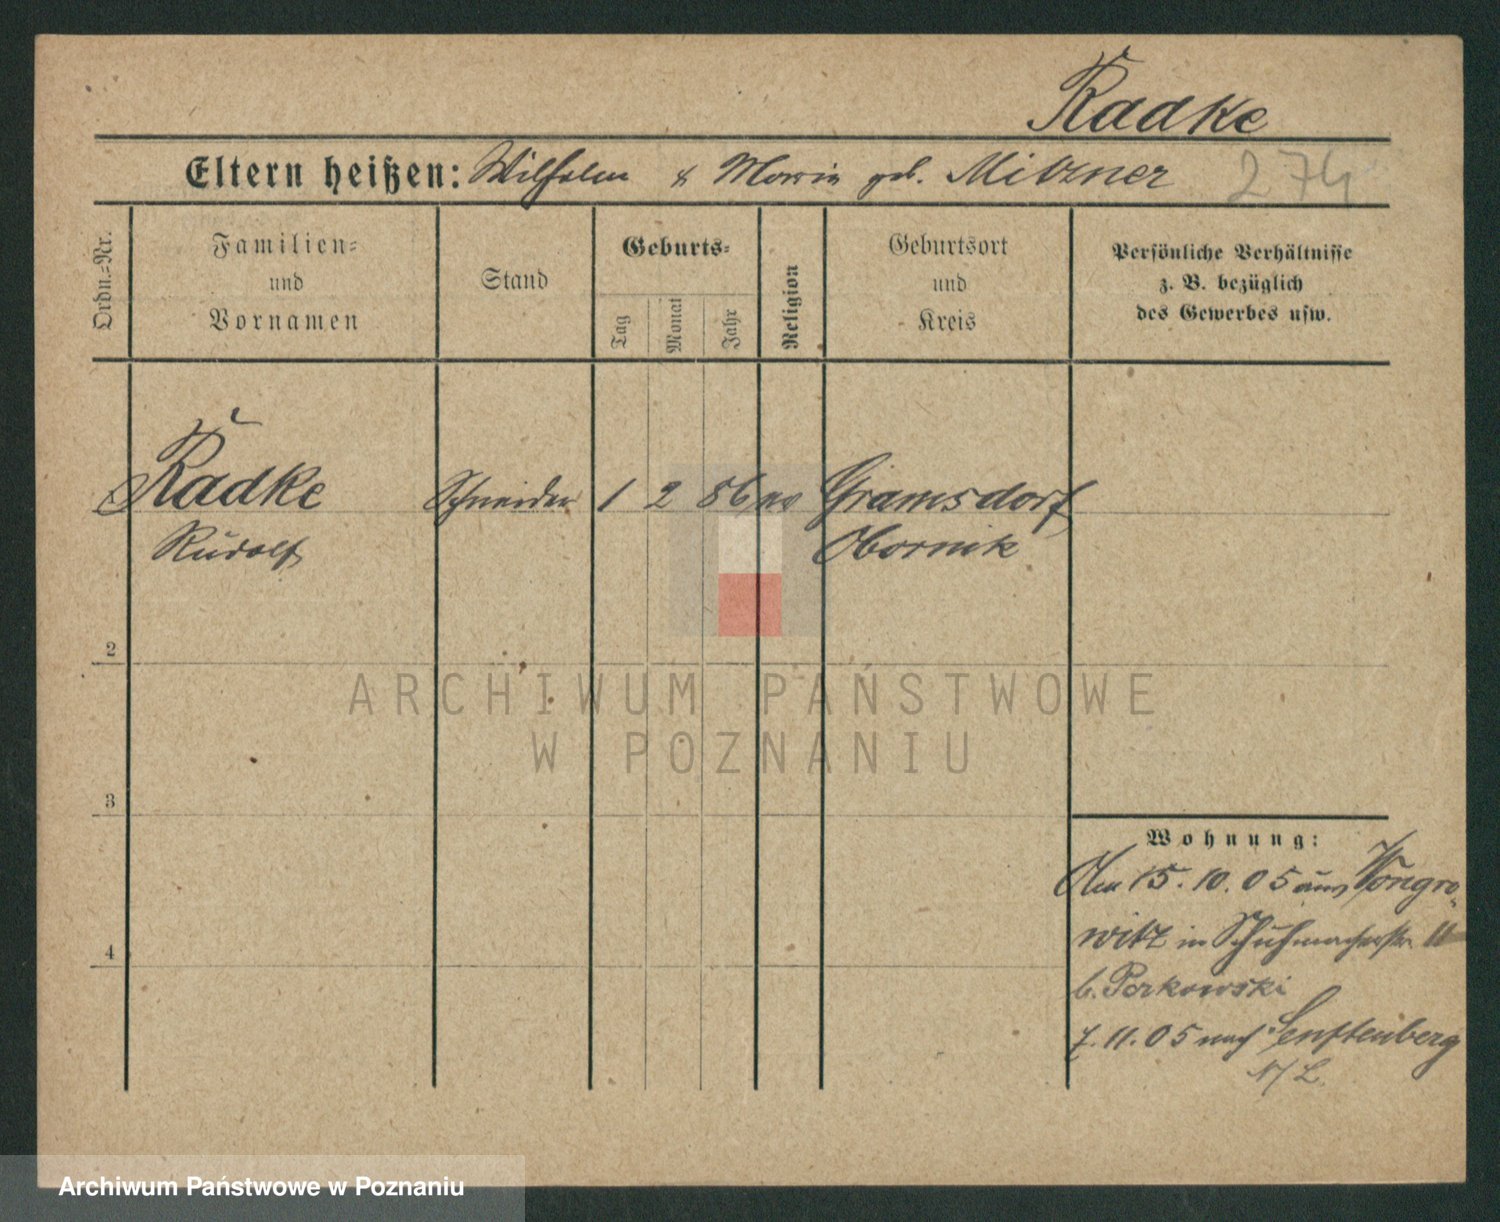 Radke
Eltern heißen: Wilhelm & Maria geb. Mitzner 274
Ordn.-Nr.
Familien-
und
Vornamen
Stand
Geburts-
Tag
Monat
Jahr
Religion
Geburtsort
und
Kreis
Persönliche Verhältnisse
z. B. bezüglich
des Gewerbes usw.
Radke Schneider 1 2 86 ev Gramsdorf
Rudolf Obornik
2
3
4
Wohnung:
Am 15. 10. 05 aus Wongro-
witz in Schuhmacherstr. 11
b. Perkowski
7. 11. 05 nach Senftenberg
N/L.
ARCHIWUM PAŃSTWOWE
W POZNANIU
Archiwum Państwowe w Poznaniu